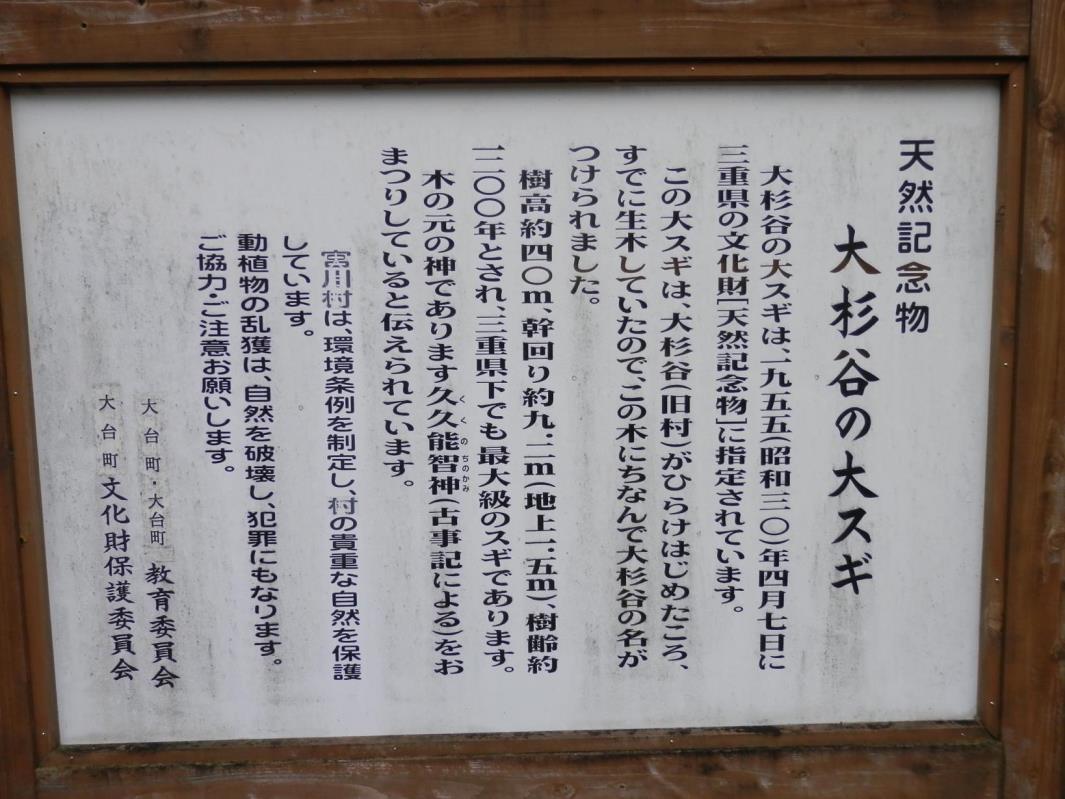 天然記念物
大杉谷の大スギ
大杉谷の大スギは、一九五五(昭和三〇)年四月七日に
三重県の文化財[天然記念物]に指定されています。
この大スギは、大杉谷(旧村)がひらけはじめたころ、
すでに生木していたので、この木にちなんで大杉谷の名が
つけられました。
樹高約四〇m、幹回り約九.二m(地上一.五m)、樹齢約
一二〇〇年とされ、三重県下でも最大級のスギであります。
木の元の神であります久久能智神(古事記による)をお
くくのちのかみ
まつりしていると伝えられています。
宮川村は、環境条例を制定し、村の貴重な自然を保護
しています。
動植物の乱獲は、自然を破壊し、犯罪にもなります。
ご協力・ご注意お願いします。
大台町・大台町教育委員会
大台町文化財保護委員会